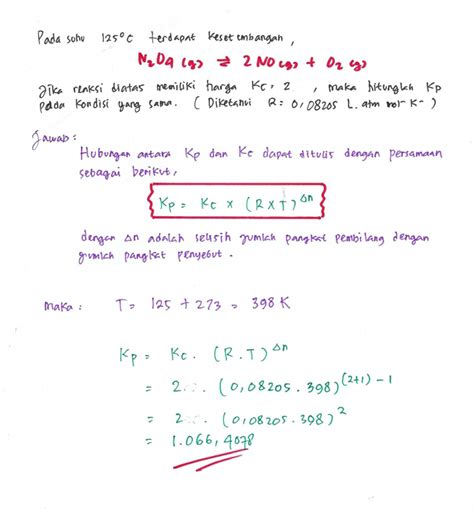 Pada suhu 125°C terdapat kesetimbangan,
N₂O4 (g) ⇌ 2 NO (g) + O₂ (g)
Jika reaksi diatas memiliki harga Kc = 2 , maka hitunglah Kp
pada kondisi yang sama. ( Diketahui R = 0,08205 L.atm mol⁻ K⁻ )
Jawab :
Hubungan antara Kp dan Kc dapat ditulis dengan persamaan
sebagai berikut,
Kp = Kc × (R×T)^Δn
dengan Δn adalah selisih jumlah pangkat pembilang dengan
jumlah pangkat penyebut.
Maka : T = 125 + 273 = 398 K
Kp = Kc . (R.T)^Δn
= 2 . (0,08205 . 398)^(2+1) - 1
= 2 . (0,08205 . 398)²
= 1.066,4078